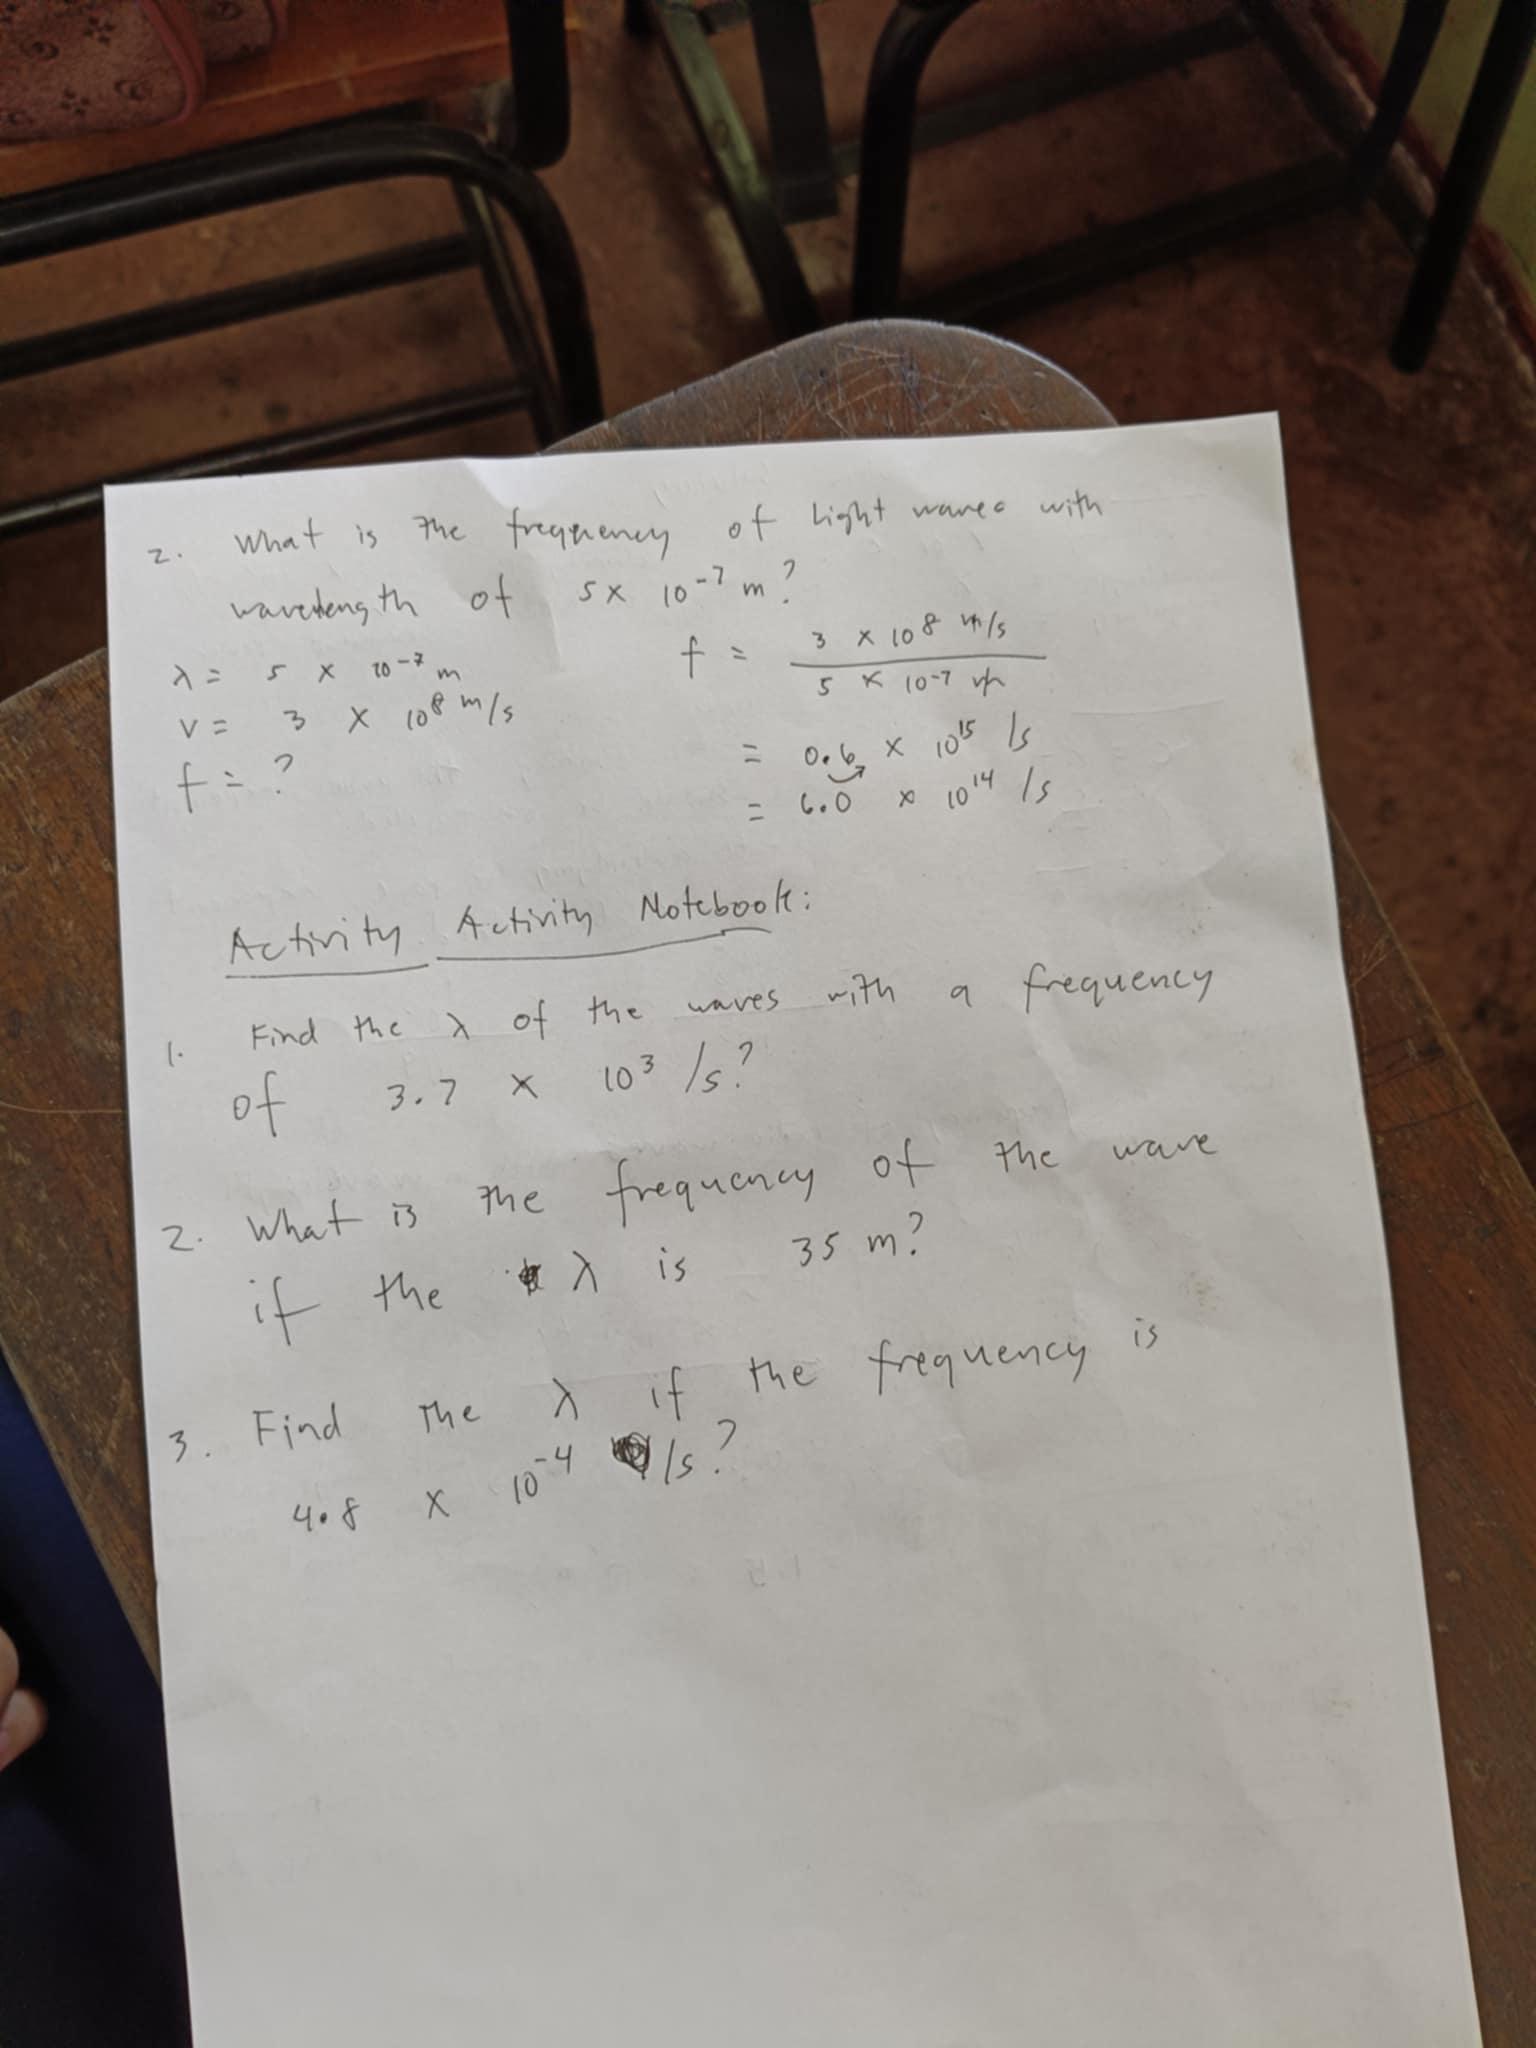 2. What is the frequency of Light waves with
wavelength of 5 x 10⁻⁷ m?
λ = 5 x 10⁻⁷ m
v = 3 x 10⁸ m/s
f = ?
f = 3 x 10⁸ m/s
5 x 10-7 m
= 0.6 x 10¹⁵ /s
= 6.0 x 10¹⁴ /s
Activity Activity Notebook:
1. Find the λ of the waves with a frequency
of 3.7 x 10³ /s?
2. What is the frequency of the wave
if the λ is 35 m?
3. Find the λ if the frequency is
4.8 x 10⁻⁴ /s?